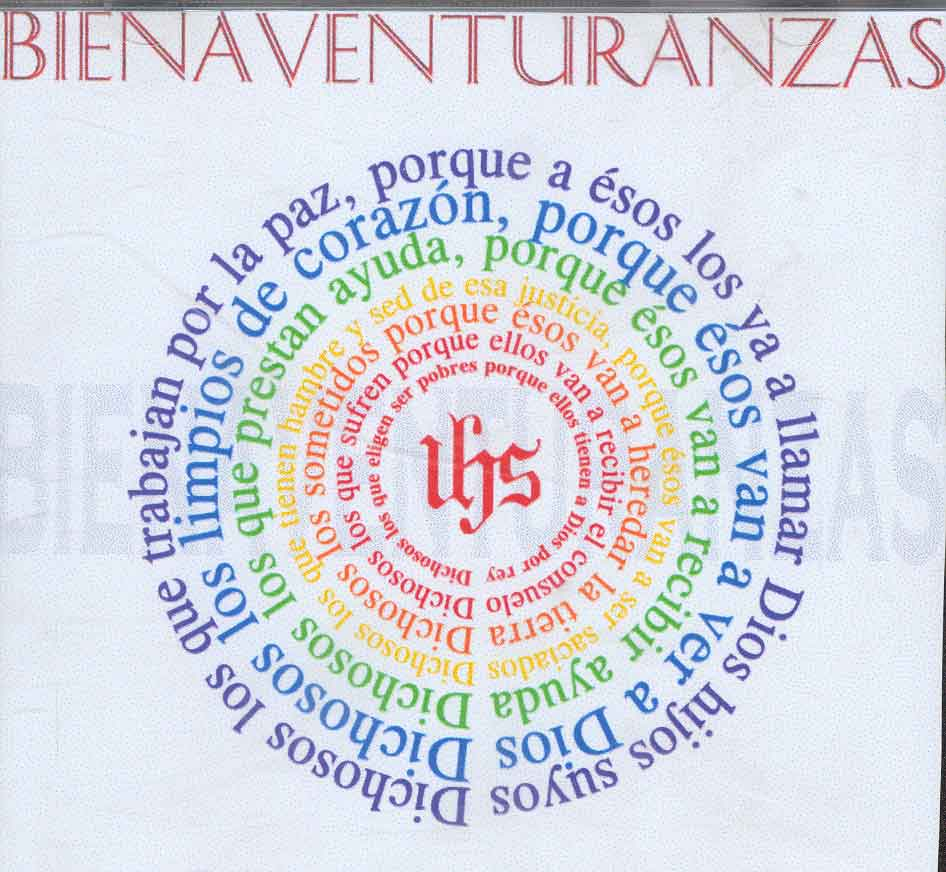 BIENAVENTURANZAS
Dichosos los que trabajan por la paz, porque a ésos los va a llamar Dios hijos suyos
Dichosos los limpios de corazón, porque ésos van a ver a Dios
Dichosos los que prestan ayuda, porque ésos van a recibir ayuda
Dichosos los que tienen hambre y sed de esa justicia, porque ésos van a ser saciados
Dichosos los sometidos porque ésos van a heredar la tierra
Dichosos los que sufren porque ellos van a recibir el consuelo
Dichosos los que eligen ser pobres porque ellos tienen a Dios por rey
ihs
BIENAVENTURANZAS